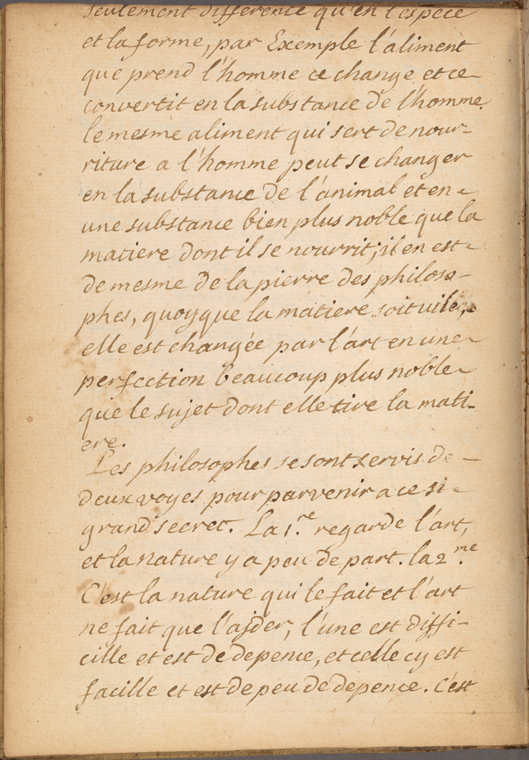 seulement difference qu'en l'espece
et la forme, par Exemple l'aliment
que prend l'homme ce change et ce
convertit en la substance de l'homme.
le mesme aliment qui sert de nour-
riture a l'homme peut se changer
en la substance de l'animal et en
une substance bien plus noble que la
matiere dont il se nourrit; il en est
de mesme de la pierre des philoso-
phes, quoyque la matiere soit vile,
elle est changée par l'art en une
perfection beaucoup plus noble
que le sujet dont elle tire la mati-
ere.
Les philosophes se sont servis de
deux voyes pour parvenir a ce si
grand secret. La 1.re regarde l'art,
et la nature y a peu de part. la 2.me
C'est la nature qui le fait et l'art
ne fait que l'ajder, l'une est diffi-
cille et est de depence, et celle cy est
facille et est de peu de depence. C'est